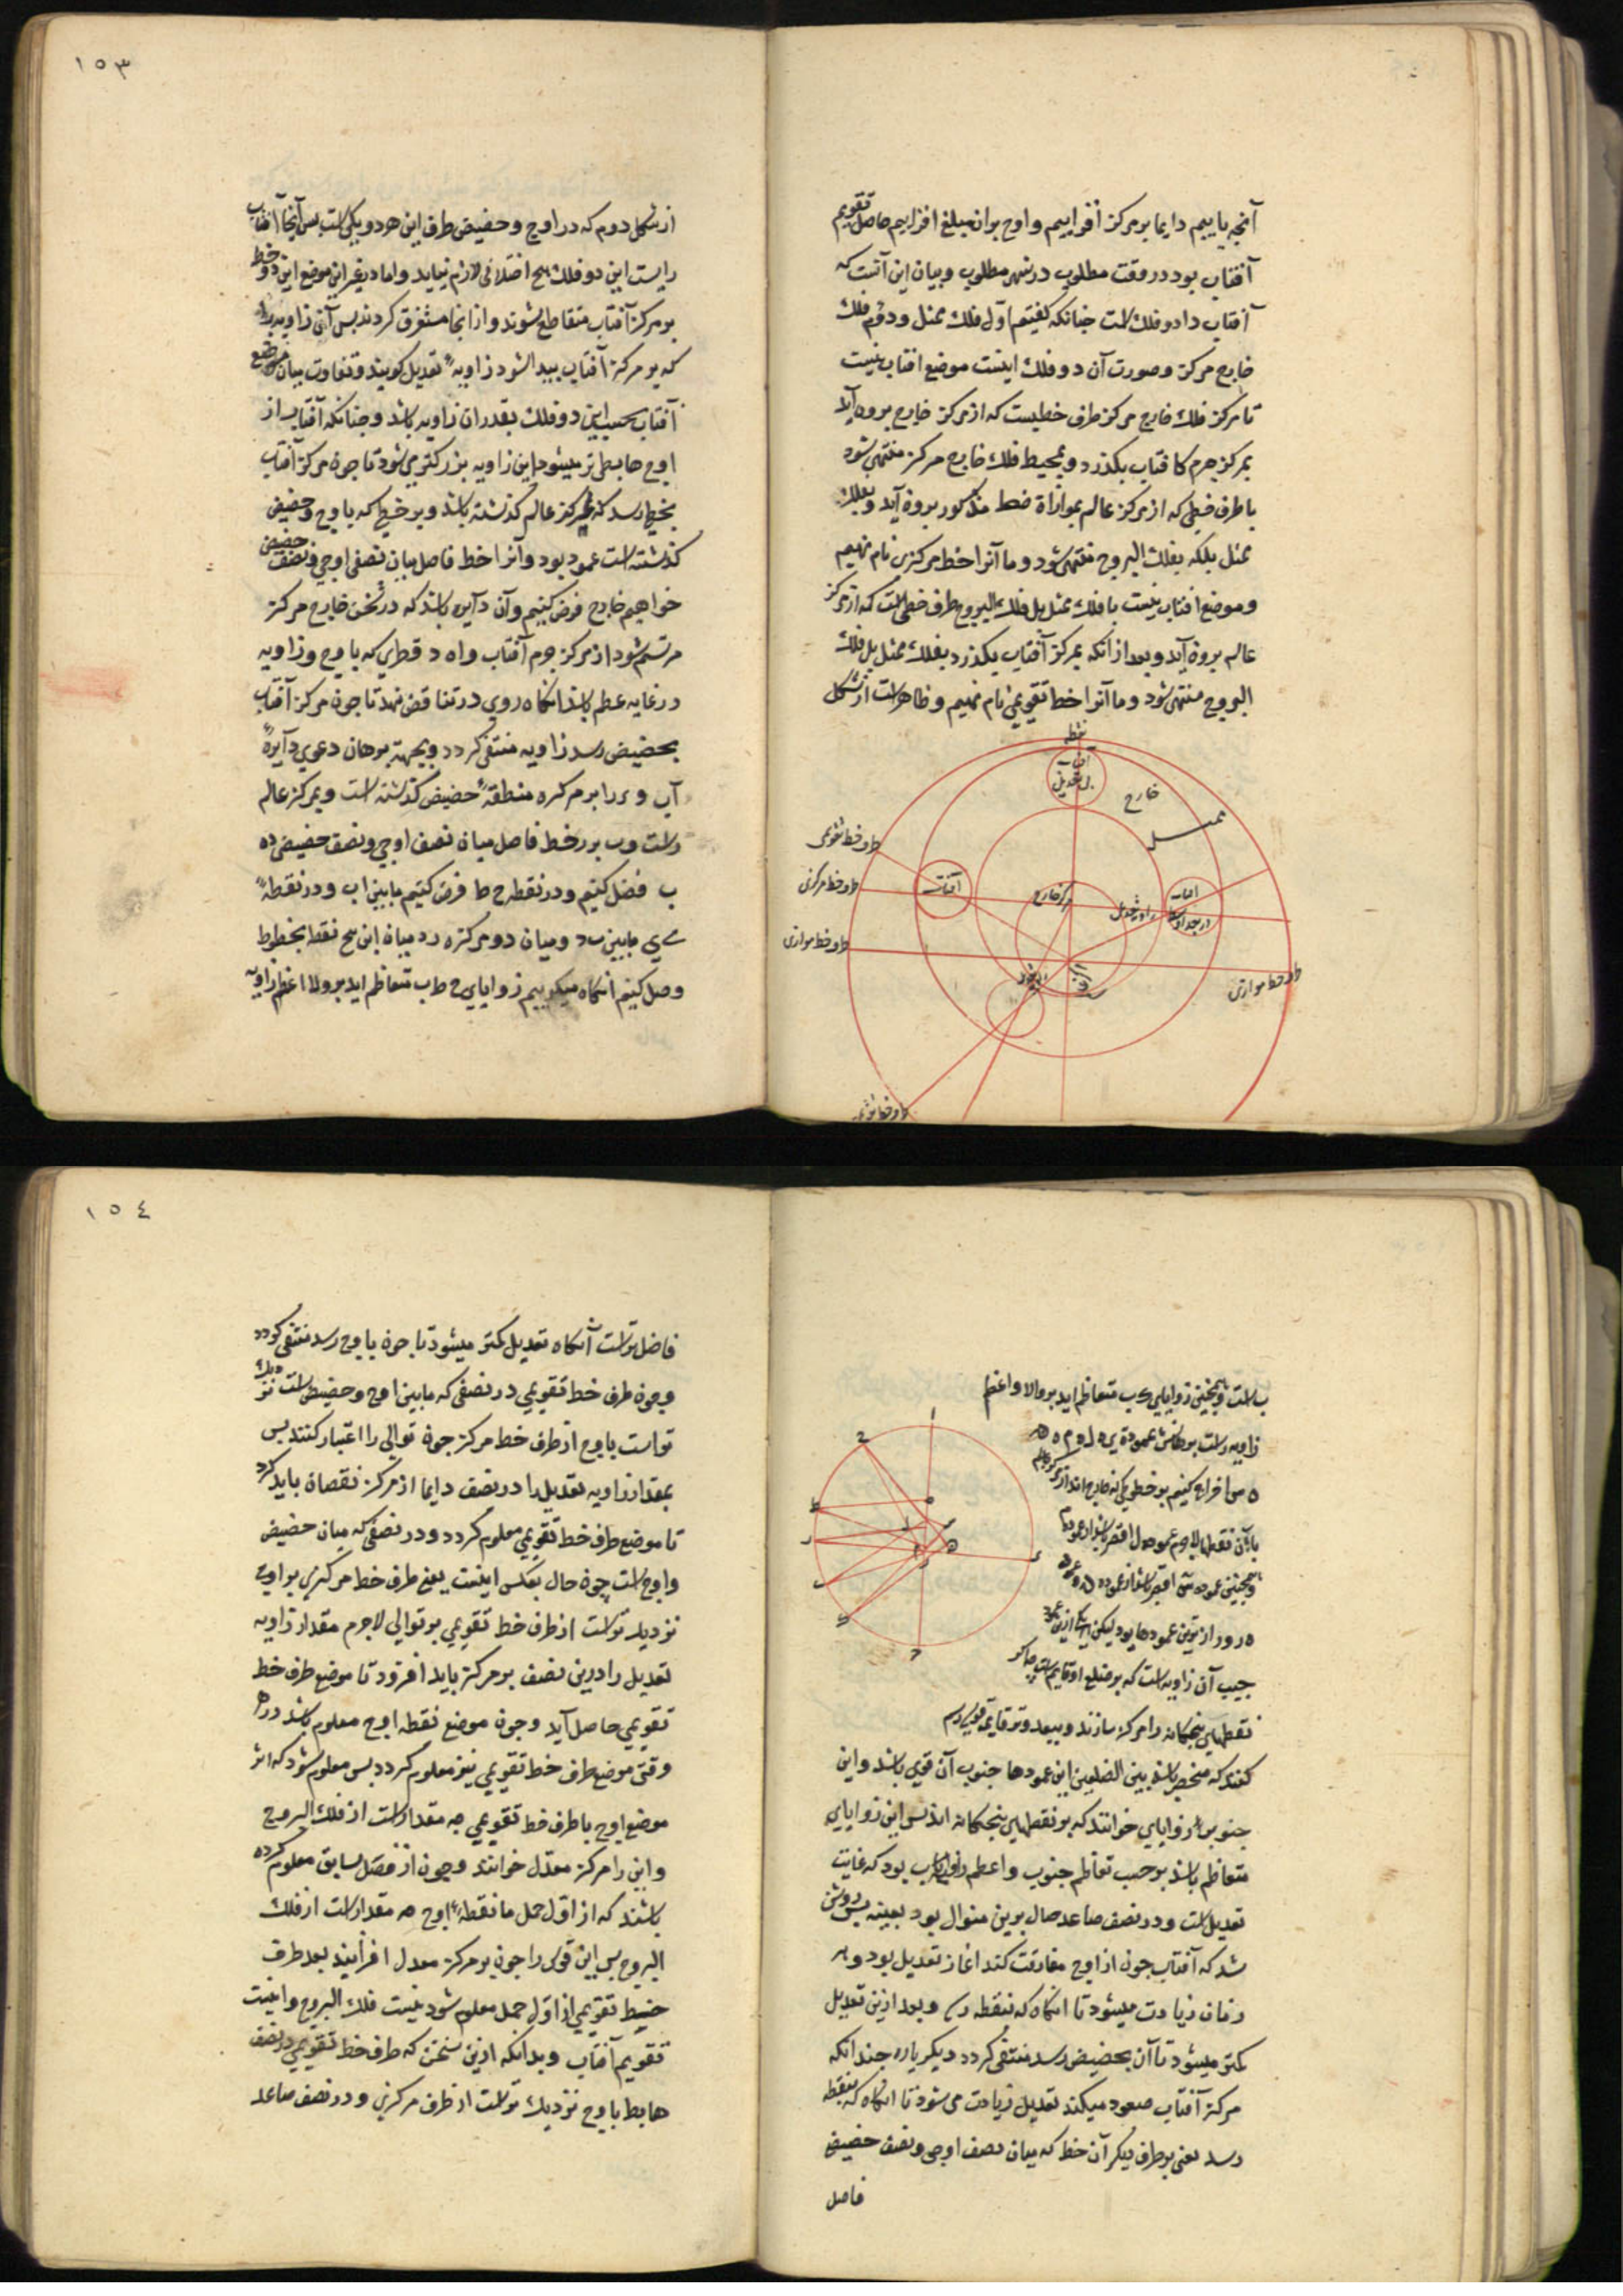 آنچه یابیم دایما بر مرکز افزاییم و اوج بران مبلغ افزاییم حاصل تقویم
آفتاب بود در وقت مطلوب در شهر مطلوب و بیان این آنست که
آفتاب را دو فلك است چنانکه گفتیم اول فلك ممثل و دوم فلك
خارج مرکز و صورت آن دو فلك اینست موضع افتاب بنسبت
تا مرکز فلك خارج مرکز طرف خطیست که از مرکز خارج برون آید
بمرکز جرم آفتاب بگذرد و بمحیط فلك خارج مرکز منتهی شود
یا طرف خطی که از مرکز عالم بموازاة خط مذکور برون آید و بفلك
ممثل بلکه بفلك البروج منتهی شود و ما آنرا خط مرکزی نام نهیم
و موضع افتاب بنسبت با فلك ممثل بل فلك البروج طرف خطی است که از مرکز
عالم برون آید و بعد از انکه بمرکز آفتاب بگذرد بفلك ممثل بل فلك
البروج منتهی شود و ما آنرا خط تقویمی نام نهیم و ظاهر است از شکل
نقطه
آفتاب
بی تعدیل
خارج
ممثل
طرف خط تقویمی
طرف خط مرکزی
طرف خط موازی
آفتاب
مرکز خارج
زاویه تعدیل
آفتاب
طرف خط موازی
طرف خط تقویمی
١٥٣
از شکل دوم که در اوج و حضیض طرف این هر دو یکی است پس آنجا آفتاب
راست این دو فلك هیچ اختلافی لازم نیاید و اما در غیر این موضع این دو خط
بر مرکز آفتاب متقاطع شوند و از انجا متفرق گردند پس آن زاویه را
که بر مرکز آفتاب پیدا شود زاویهٔ تعدیل گویند و تفاوت میان موضع
آفتاب بحسب این دو فلك بقدر ان زاویه باشد و چنانکه آفتاب از
اوج هابط تر میشود این زاویه بزرگتر می شود تا چون مرکز آفتاب
بخطی رسد که بمرکز عالم گذشته باشد و بر خطی که باوج و حضیض
گذشته است عمود بود و آنرا خط فاصل میان نصف اوجی و نصف حضیضی
خواهیم خارج فرض کنیم و آن دایره باشد که در ثخن خارج مرکز
مرتسم شود از مرکز جرم آفتاب و اه د قطری که باوج و زاویه
در غایه عظم باشد انگاه روی در تناقص نهد تا چون مرکز آفتاب
بحضیض رسد زاویه منتفی گردد و بجهة برهان دعوی دایرهٔ
آب و ر را بر مرکز ه منطقهٔ حضیض گذشته است و بمرکز عالم
راست و ب بر ر خط فاصل میان نصف اوجی و نصف حضیضی ده
ب فصل کنیم و در نقطه ح ط فرض کنیم مابین اب و در نقطهٔ
ی مابین ب د و میان دو مرکز ه ر د میان این پنج نقطه بخطوط
وصل کنیم انگاه میگوییم زوایای ح ط ب متعاظم اید بر ولا و اعظم زاویه
ب است و همچنین زوایای ی ب متعاظم اید بر ولا و اعظم
جیب آن زاویه است که بر ضلع او قایم است چه اگر
نقطهای پنجگانه را مرکز سازند و ببعد وتر قایمه قوسی رسم
کنند که منحصر باشد بین الضلعین این عمودها جنوب آن قوی باشد و این
جنوب را زوایای خوانند که بر نقطهای پنجگانه اند پس این زوایای
متعاظم باشد بر حسب تعاظم جنوب و اعظم زوایا ب بود که غایت
تعدیل است و در نصف صاعد حال برین منوال بود بعینه پس روشن
شد که آفتاب چون از اوج مفارقت کند اغاز تعدیل بود و هر
زمان زیادت میشود تا انگاه که بنقطه رسد و بعد ازین تعدیل
کمتر میشود تا آن بحضیض رسد منتفی گردد دیگر باره چندانکه
مرکز آفتاب صعود میکند تعدیل زیادت می شود تا انگاه که بنقطه
رسد یعنی بر طرف دیگر آن خط که میان نصف اوجی و نصف حضیضی
فاصل
١٥٤
فاصل تراست آنگاه تعدیل کمتر میشود تا چون باوج رسد منتفی گردد
و چون طرف خط تقویمی در نصفی که مابین اوج و حضیض است نزدیك
تر است باوج از طرف خط مرکز چون توالی را اعتبار کنند پس
بمقدار زاویه تعدیل را در نصف دایما از مرکز نقصان باید کرد
تا موضع طرف خط تقویمی معلوم گردد و در نصفی که میان حضیض
و اوج است چون حال بعکس اینست یعنی طرف خط مرکزی بر اوج
نزدیك تر است از طرف خط تقویمی بر توالی لاجرم مقدار زاویه
تعدیل را درین نصف بر مرکز باید افزود تا موضع طرف خط
تقویمی حاصل آید و چون موضع نقطه اوج معلوم باشد در هر
وقتی موضع طرف خط تقویمی نیز معلوم گردد پس معلوم شود که از
موضع اوج با طرف خط تقویمی چه مقدار است از فلك البروج
و این را مرکز معدل خوانند و چون از فصل سابق معلوم کرده
باشند که از اول حمل تا نقطهٔ اوج چه مقدار است از فلك
البروج پس این قوس را چون بر مرکز معدل افزایند بعد طرف
خط تقویمی از اول حمل معلوم شود بنسبت فلك البروج و اینست
تقویم آفتاب و بدانکه ازین سخن که طرف خط تقویمی در نصف
هابط باوج نزدیك تر است از طرف مرکزی و در نصف صاعد